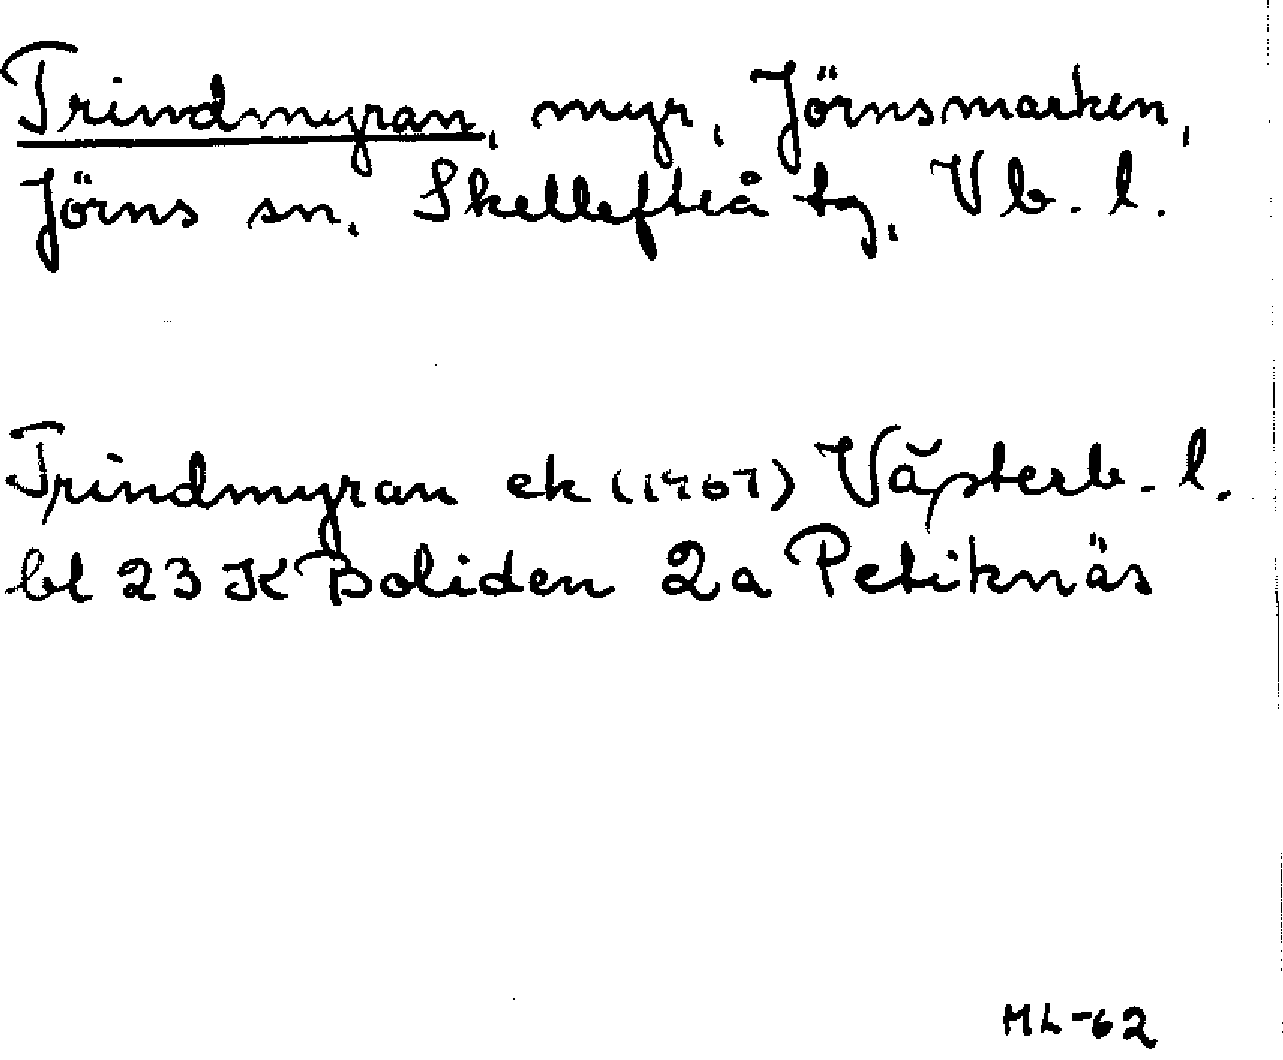 Trindmyran, myr, Jörnsmarken,
Jörns sn, Skellefteå tg, Vb. l.
Trindmyran ek (1967) Västerb. l.
bl 23 K Boliden 2a Petiknäs
ML-62